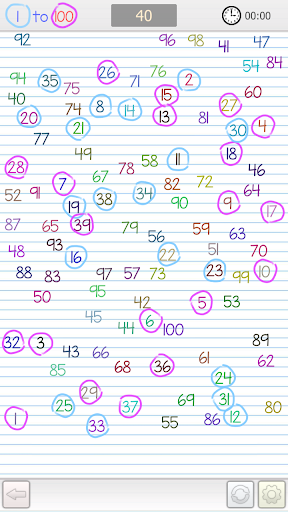 1 to 100 40 00:00
92 96 98 41 47
54 84
94 35 26 71 76 2
75 60
40 15
20 74 8 14 27
13 81
21 30 4
77
49 11 18
28 58 46
67
7 82 72 64
52 91 38 34
19 90 9 17
87 65 39 79 59 63
56
48 93 51 70
16 22
88 83 97 57 73 23 99 10
50 95
42 5 53
45 44 6 100
32 3 89
43 66
85 68 36 61 62
24
29 31
25 37 69 80
1 33 55 86 12